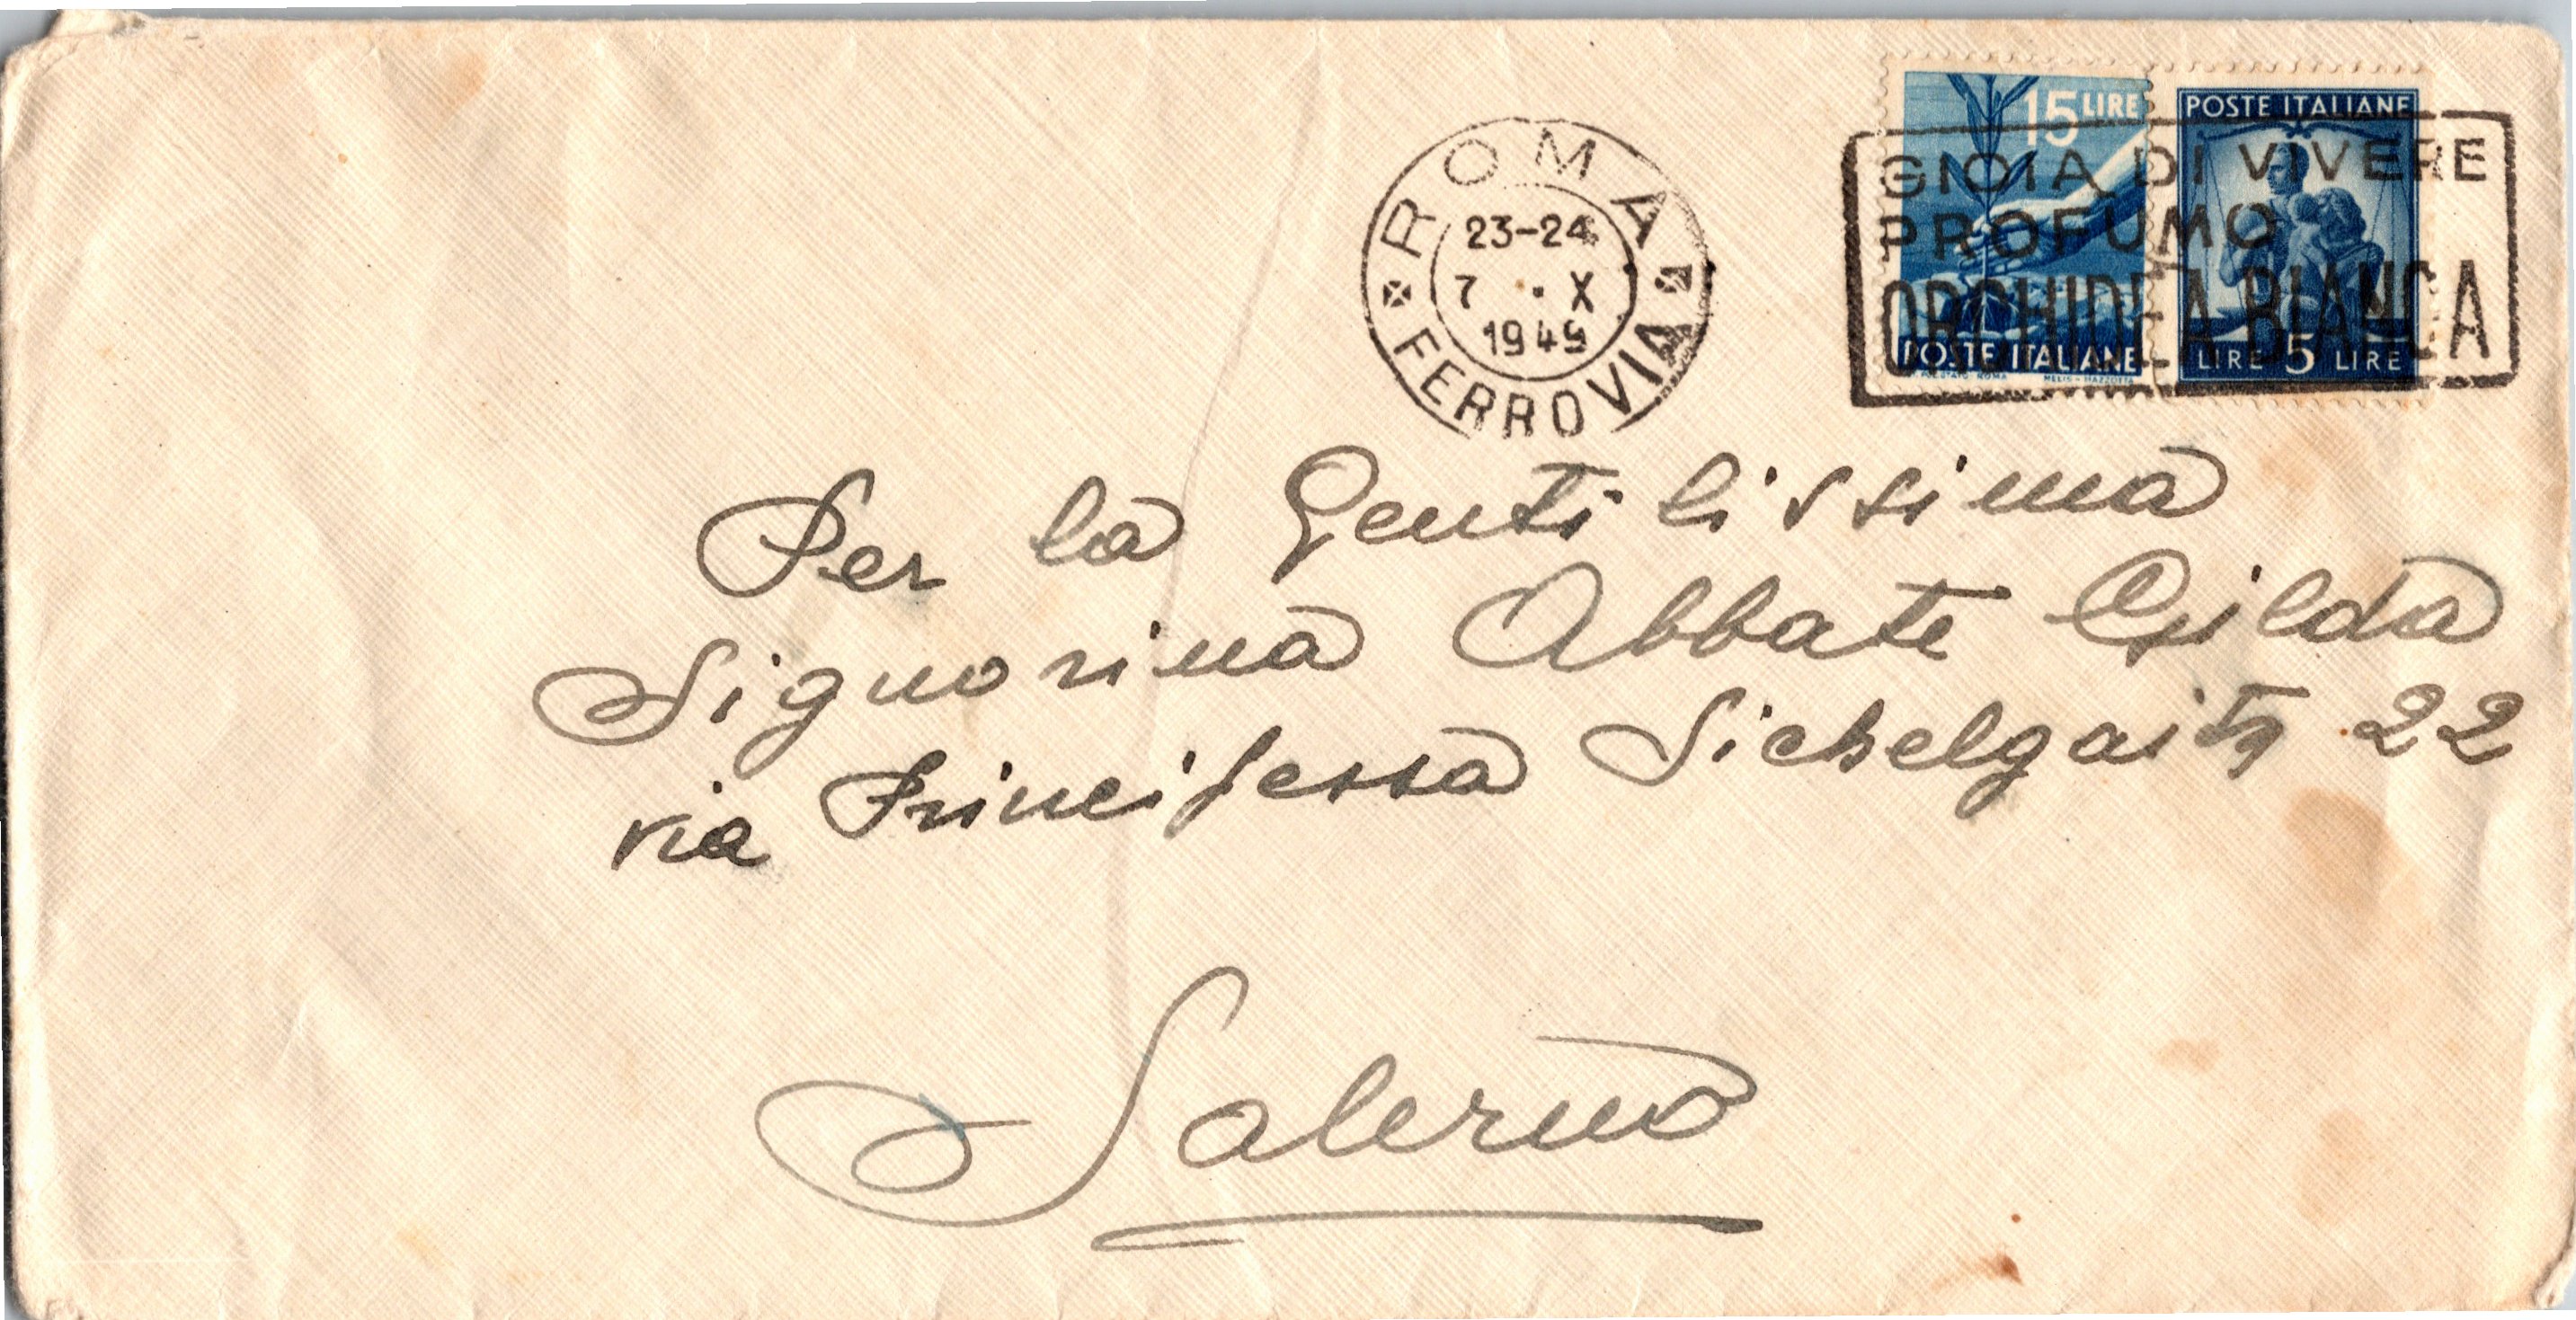 ROMA
23-24
7 · X
1949
FERROVIA
15 LIRE
POSTE ITALIANE
POSTE ITALIANE
LIRE 5 LIRE
GIOIA DI VIVERE
PROFUMO
ORCHIDEA BIANCA
Per la Gentilissima
Signorina Abbate Gilda
via Principessa Sichelgaita 22
Salerno